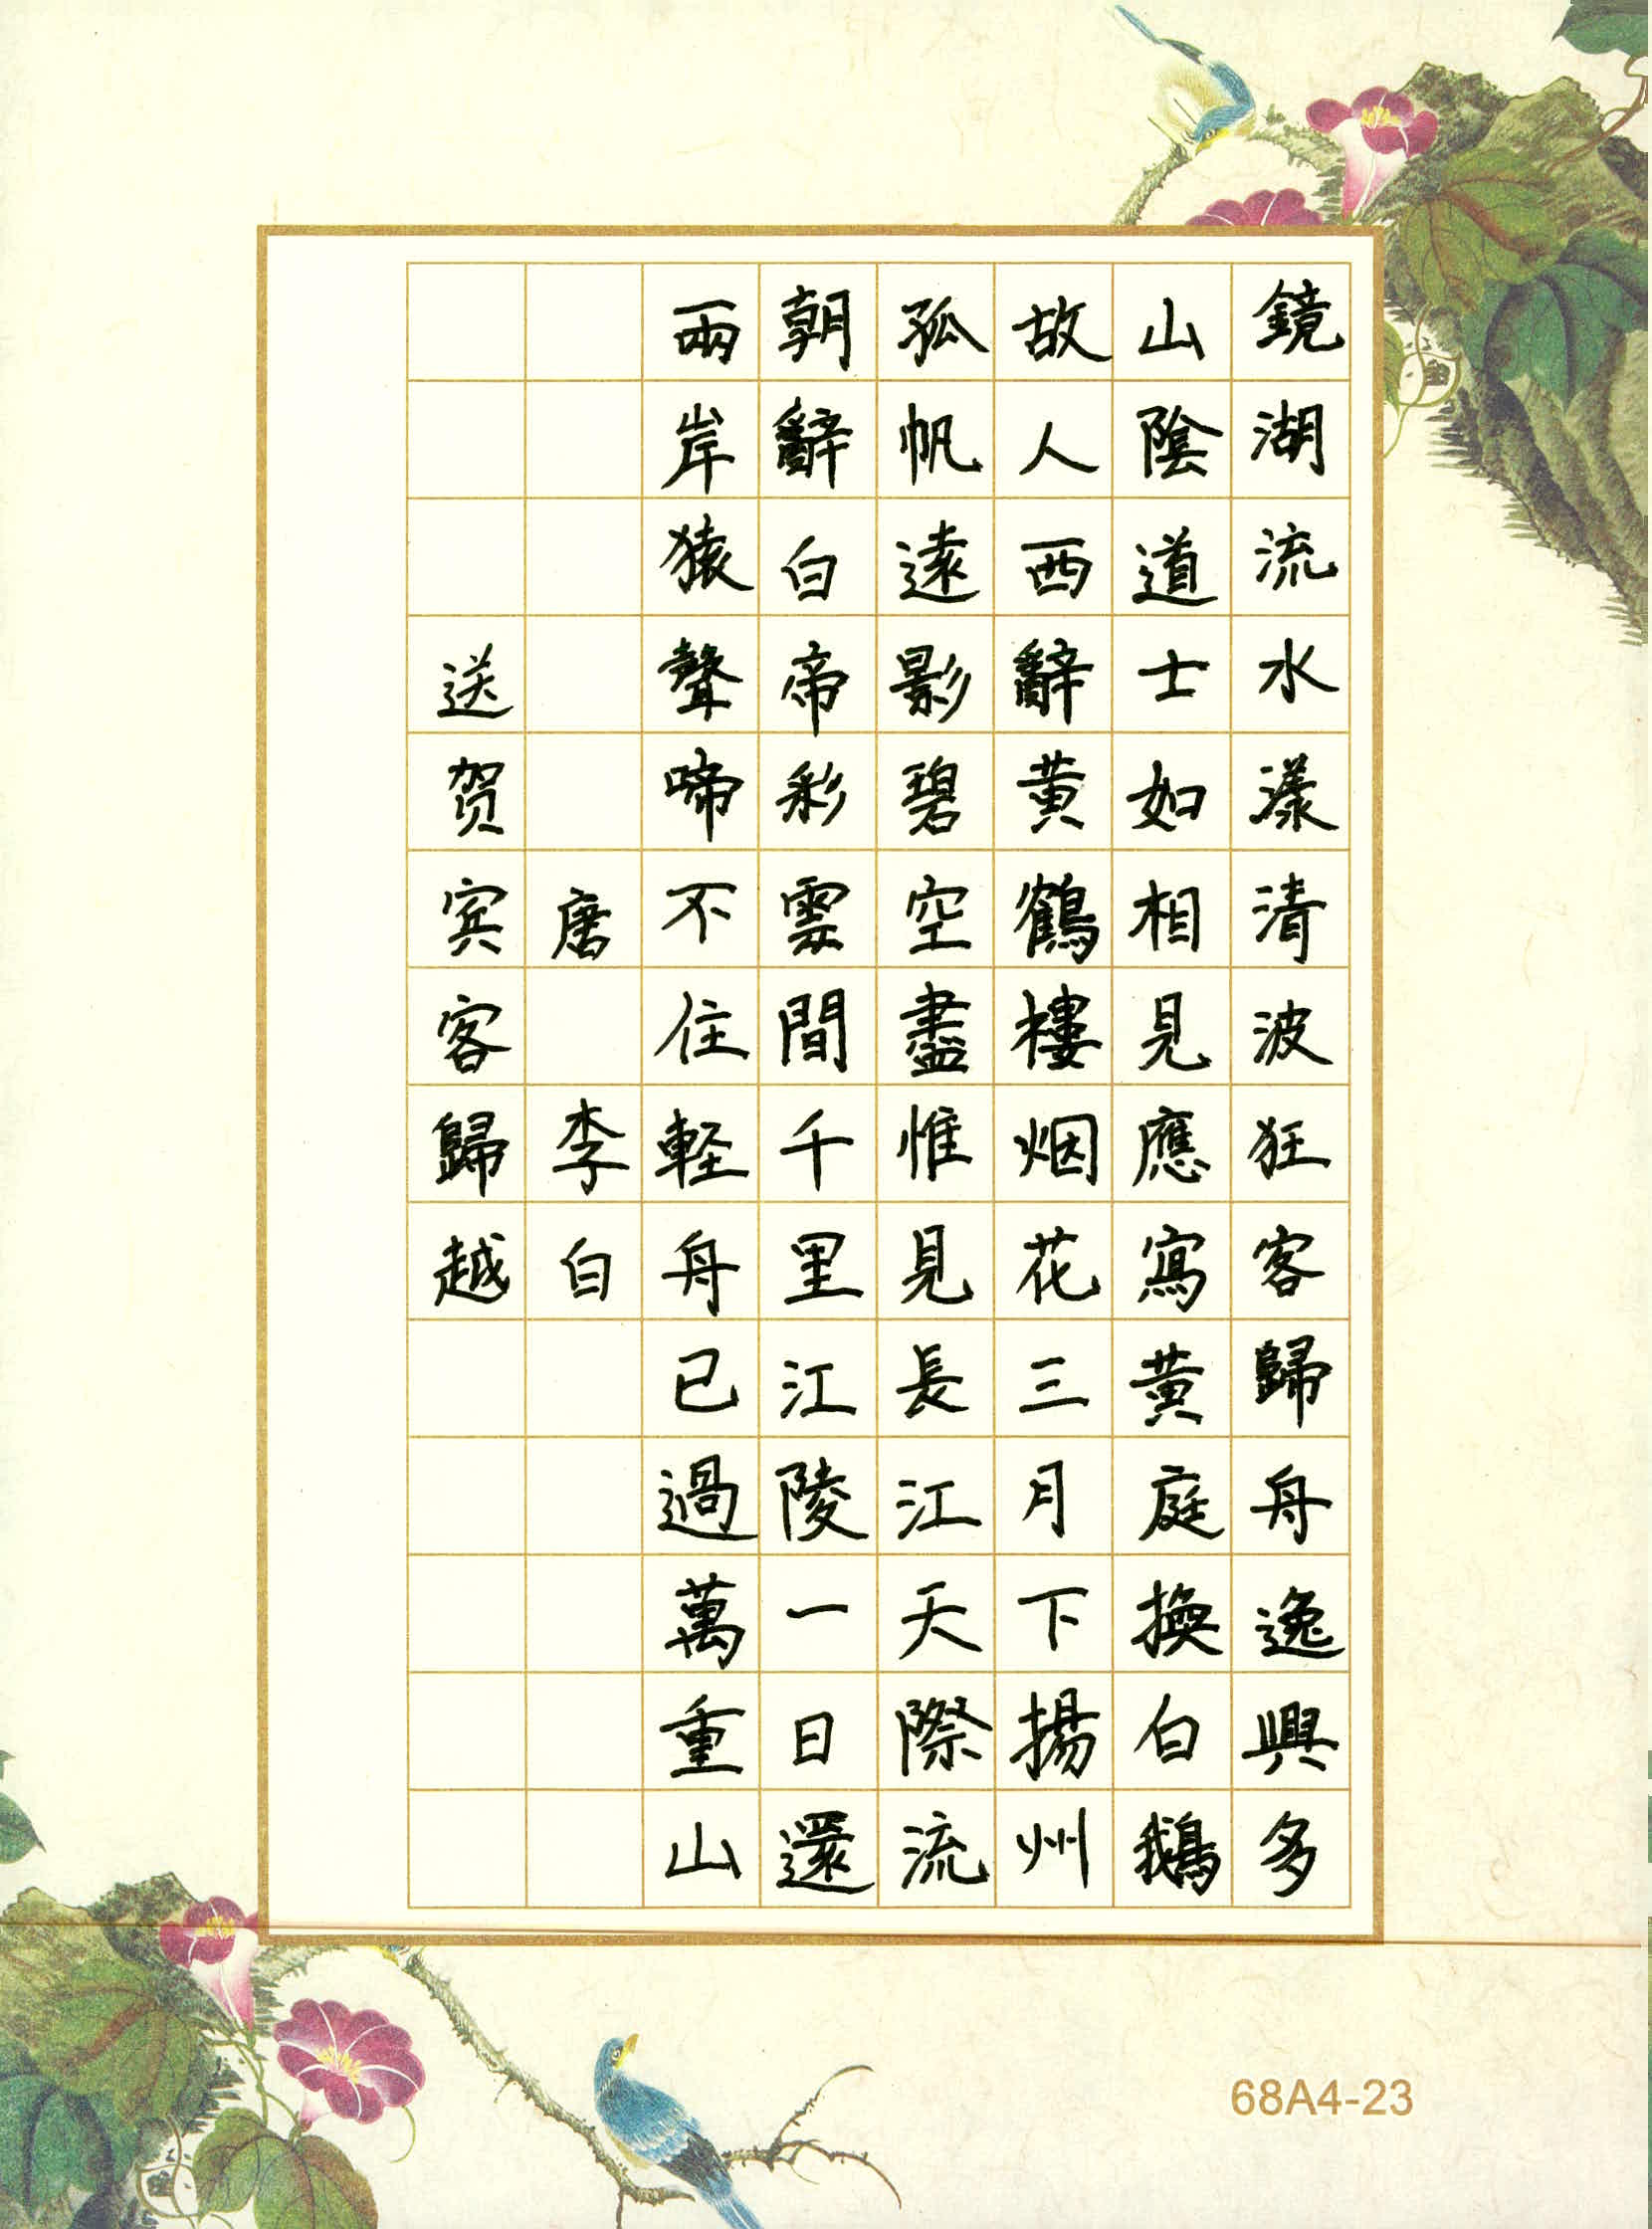 鏡湖流水漾清波狂客歸舟逸興多
山陰道士如相見應寫黄庭換白鵝
故人西辭黄鶴樓烟花三月下揚州
孤帆遠影碧空盡惟見長江天際流
朝辭白帝彩雲間千里江陵一日還
兩岸猿聲啼不住軽舟已過萬重山
唐 李白
送贺宾客歸越
68A4-23